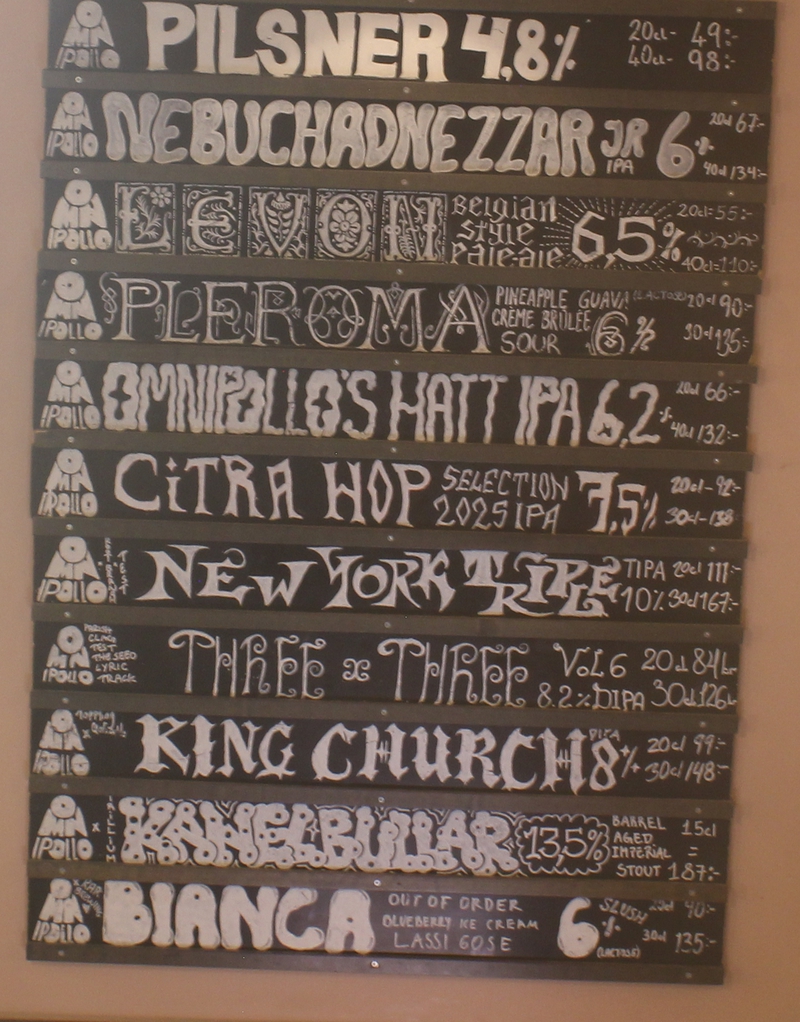 OMNIPOLLO PILSNER 4,8% 20cl- 49:-
40cl- 98:-
OMNIPOLLO NEBUCHADNEZZAR JR IPA 6% 20cl 67:-
40cl 134:-
OMNIPOLLO LEVON Belgian style Pale-ale 6,5% 20cl=55:-
40cl=110:-
OMNIPOLLO PLEROMA PINEAPPLE GUAVA (LACTOSE) CRÈME BRÛLÉE SOUR 6% 20cl 90:-
30cl 135:-
OMNIPOLLO OMNIPOLLO'S HATT IPA 6,2% 20cl 66:-
40cl 132:-
OMNIPOLLO CiTRA HOP SELECTION 2025 IPA 7,5% 20cl-92:-
30cl-138
OMNIPOLLO NEW YORK TRIPLE TIPA 20cl 111:-
10% 30cl 167:-
OMNIPOLLO TEST THE SEED LYRIC TRACK THREE x THREE VOL 6 20cl 84:-
8.2% DIPA 30cl 126:-
OMNIPOLLO x KING CHURCH DIPA 8% 20cl 99:-
30cl 148:-
OMNIPOLLO x KANELBULLAR 13,5% BARREL AGED IMPERIAL STOUT 15cl = 187:-
OMNIPOLLO BIANCA OUT OF ORDER
BLUEBERRY ICE CREAM
LASSI GOSE
6% (LACTOSE) SLUSH 90:-
30cl 135:-